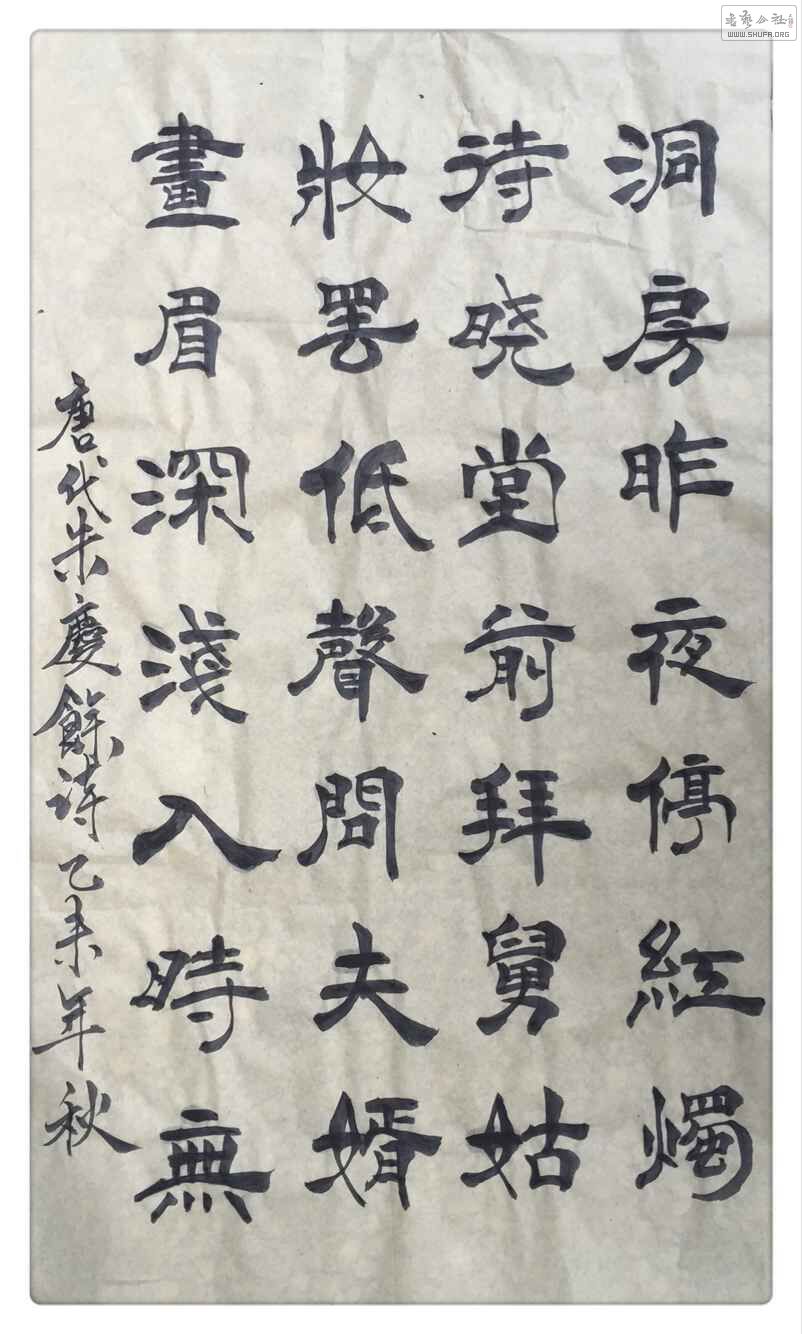 洞房昨夜停紅燭
待晓堂前拜舅姑
妝罢低聲問夫婿
畫眉深淺入時無
唐代朱慶餘詩乙未年秋
WWW.SHUFA.ORG